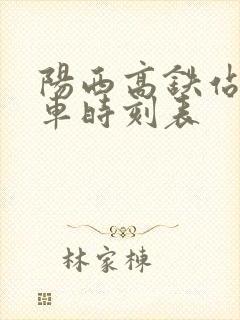 陽西高鉄佔
車時刻表
林家棟